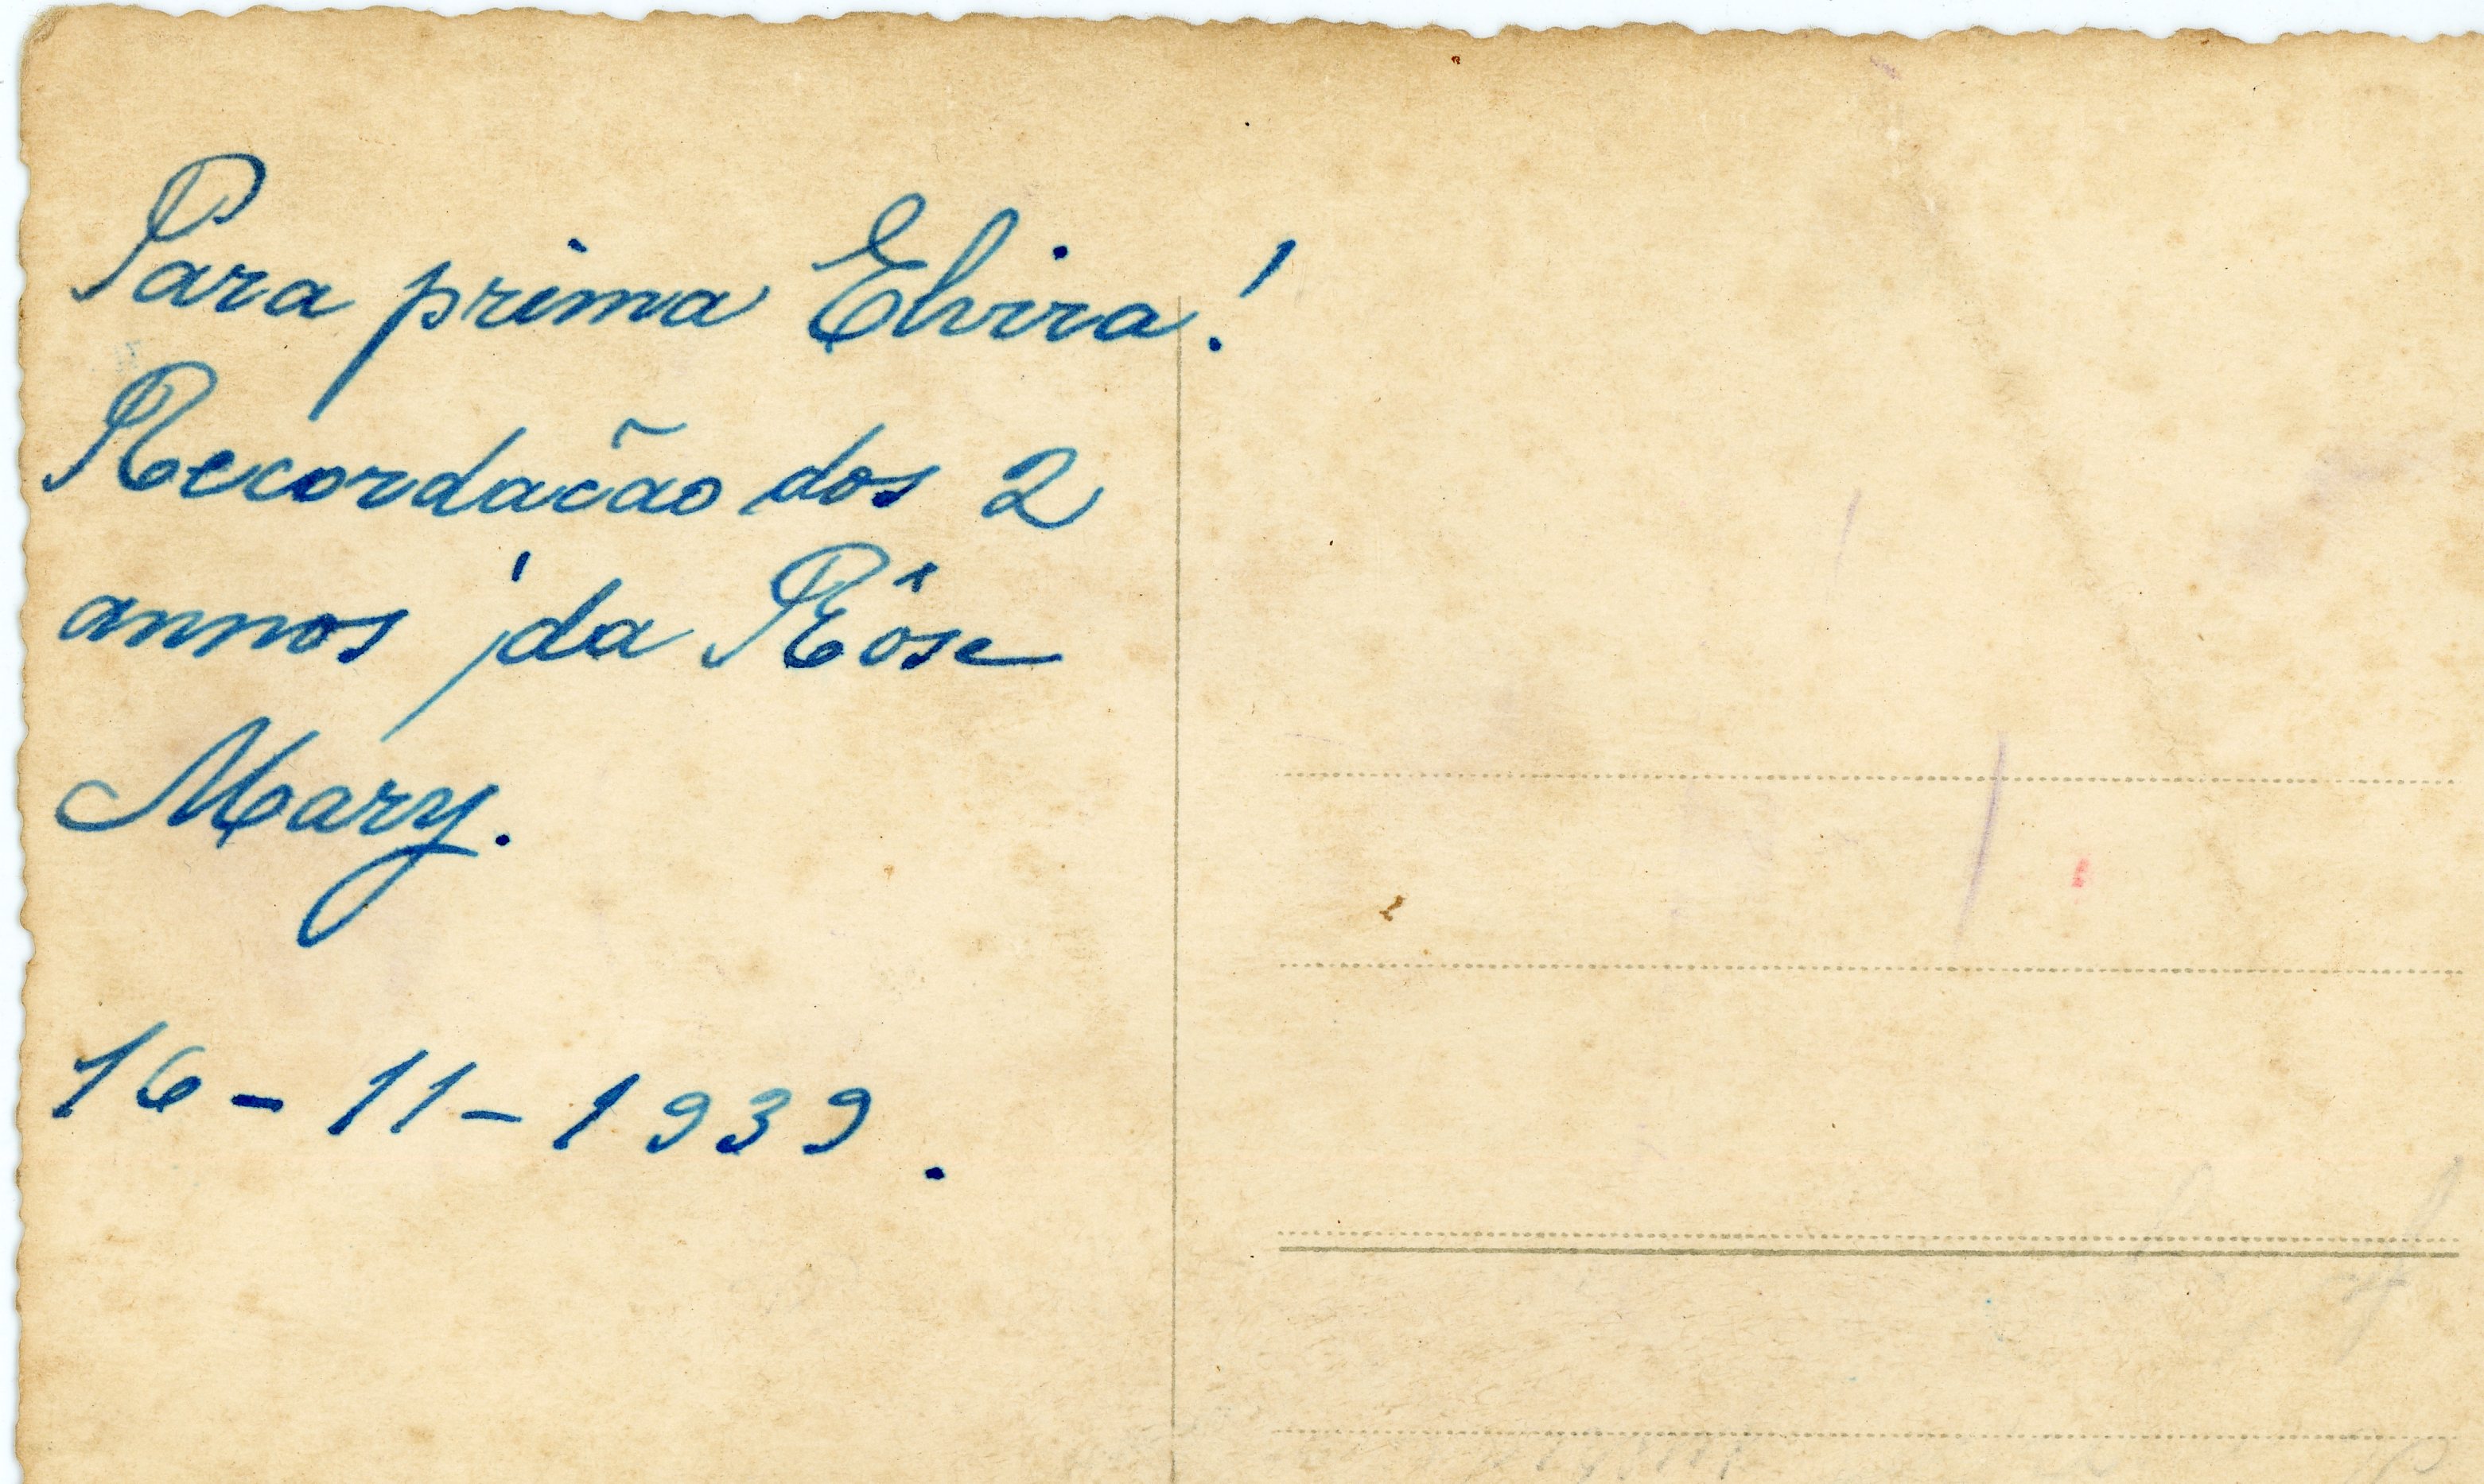 Para prima Elvira!
Recordacão dos 2
annos da Rôse
Mary.
16-11-1939.